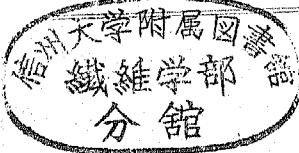 信州大学附属図書館
繊維学部
分舘